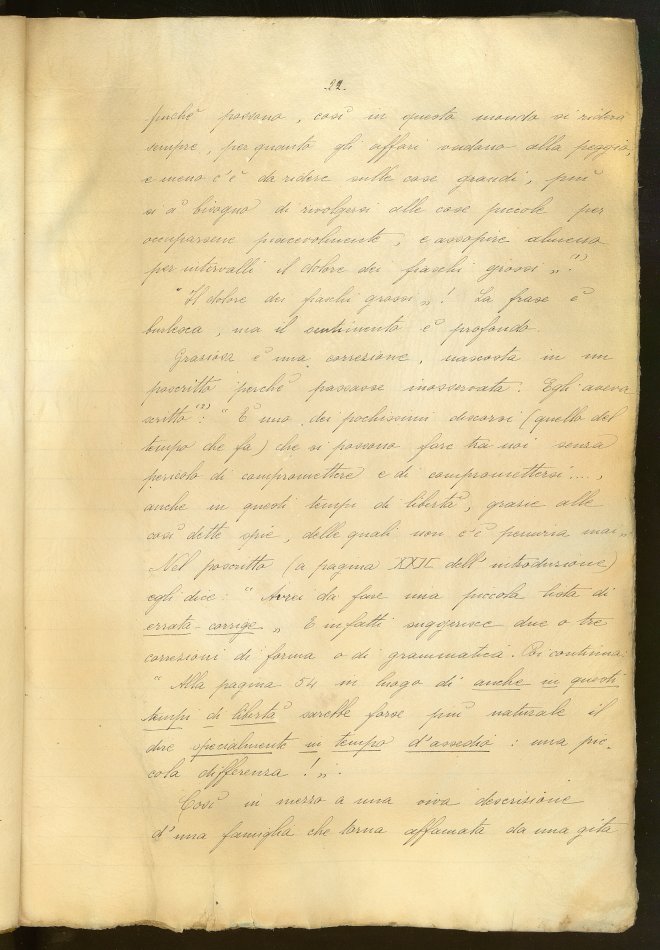 22.
finchè possono, così in questo mondo si riderà
sempre, per quanto gli affari vadano alla peggio,
e meno c'è da ridere sulle cose grandi, più
si à bisogno di rivolgersi alle cose piccole per
occuparsene piacevolmente, e assopire almeno
per intervalli il dolore dei fiaschi grossi „ (1)
" Il dolore dei fiaschi grossi „ ! La frase è
burlesca, ma il sentimento è profondo.
Graziosa è una correzione, nascosta in un
poscritto perchè passasse inosservata. Egli aveva
scritto (2): " È uno dei pochissimi discorsi (quello del
tempo che fa) che si possono fare tra noi senza
pericolo di compromettere e di compromettersi....,
anche in questi tempi di libertà, grazie alle
così dette spie, delle quali non c'è penuria mai „
Nel poscritto (a pagina XXII dell'introduzione)
egli dice: " Avrei da fare una piccola lista di
errata-corrige „ E infatti suggerisce due o tre
correzioni di forma o di grammatica. Poi continua:
" Alla pagina 54 in luogo di anche in questi
tempi di libertà sarebbe forse più naturale il
dire specialmente in tempo d'assedio : una pic-
cola differenza ! „.
Così in mezzo a una viva descrizione
d'una famiglia che torna affamata da una gita